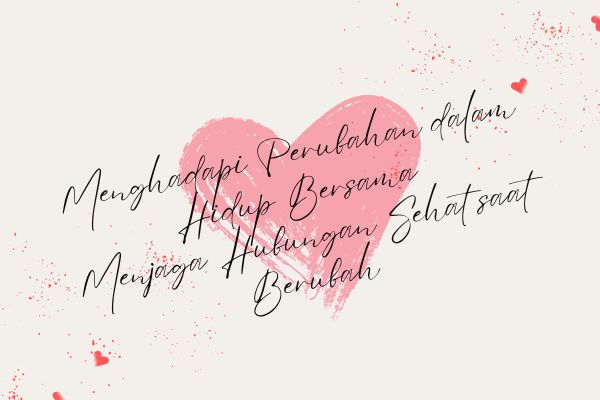 Menghadapi Perubahan dalam
Hidup Bersama
Menjaga Hubungan Sehat saat
Berubah